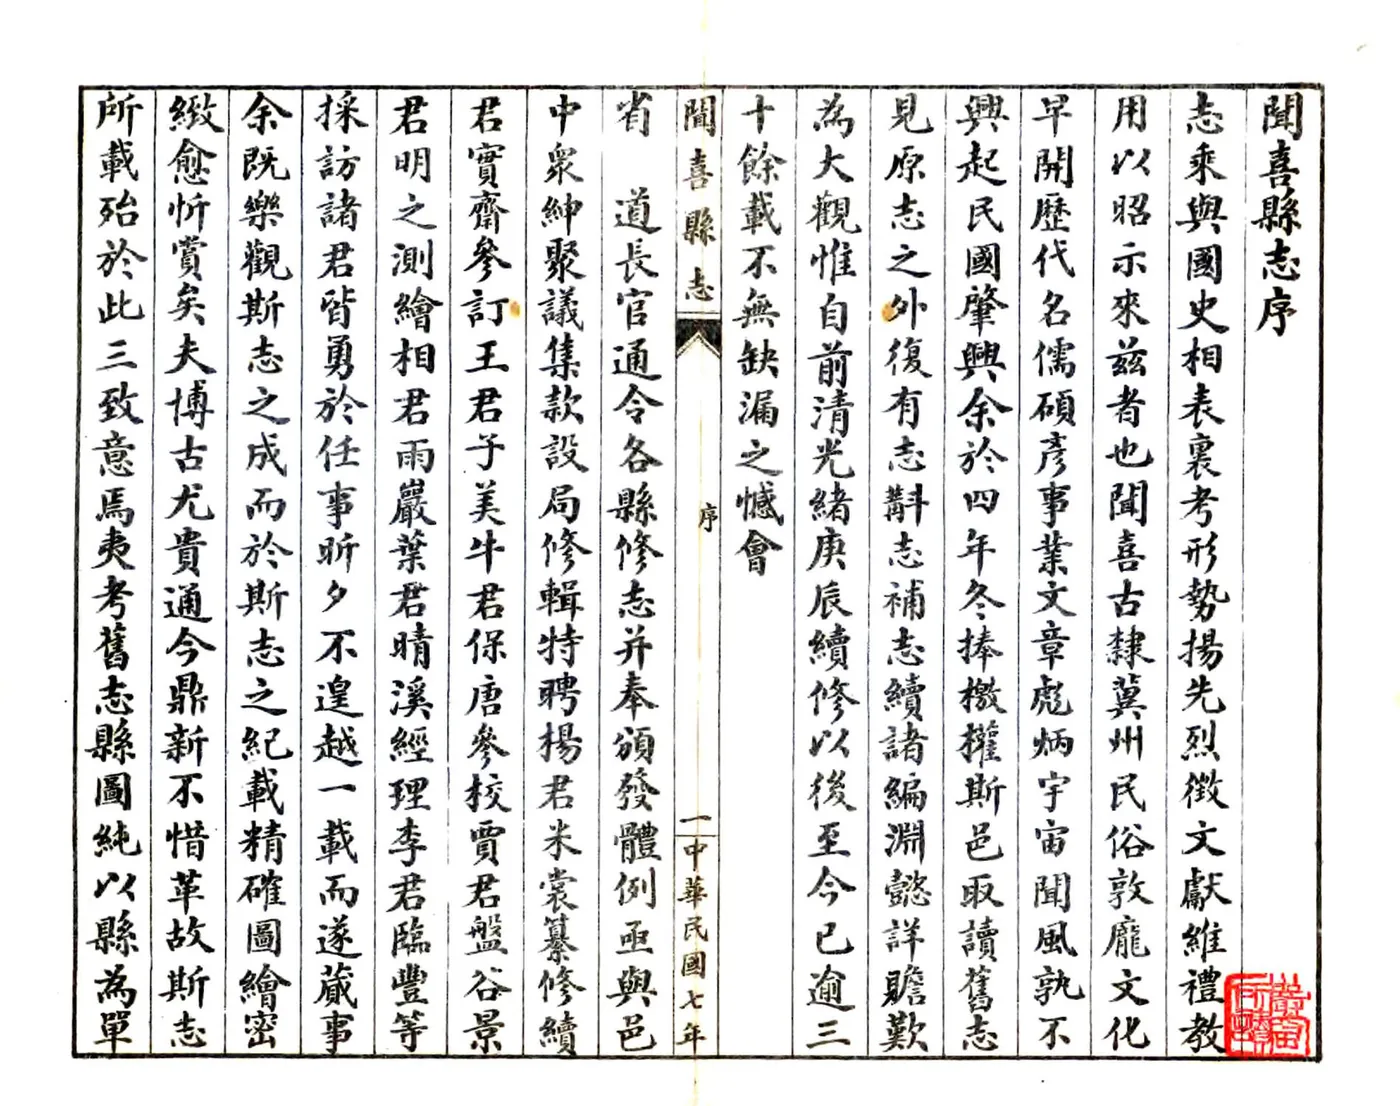 聞喜縣志序
志乘與國史相表裏考形勢揚先烈徵文獻維禮教
用以昭示來茲者也聞喜古隸冀州民俗敦龐文化
早開歷代名儒碩彥事業文章彪炳宇宙聞風孰不
興起民國肇興余於四年冬捧檄權斯邑取讀舊志
見原志之外復有志斠志補志續諸編淵懿詳贍歎
為大觀惟自前清光緒庚辰續修以後至今已逾三
十餘載不無缺漏之憾會
聞喜縣志
序
一
中華民國七年
省 道長官通令各縣修志并奉頒發體例亟與邑
中眾紳聚議集款設局修輯特聘楊君米裳纂修續
君實齋參訂王君子美牛君保唐參校賈君盤谷景
君明之測繪相君雨巖葉君晴溪經理李君臨豐等
採訪諸君皆勇於任事昕夕不遑越一載而遂蕆事
余既樂觀斯志之成而於斯志之紀載精確圖繪密
緻愈忻賞矣夫博古尤貴通今鼎新不惜革故斯志
所載殆於此三致意焉夷考舊志縣圖純以縣為單